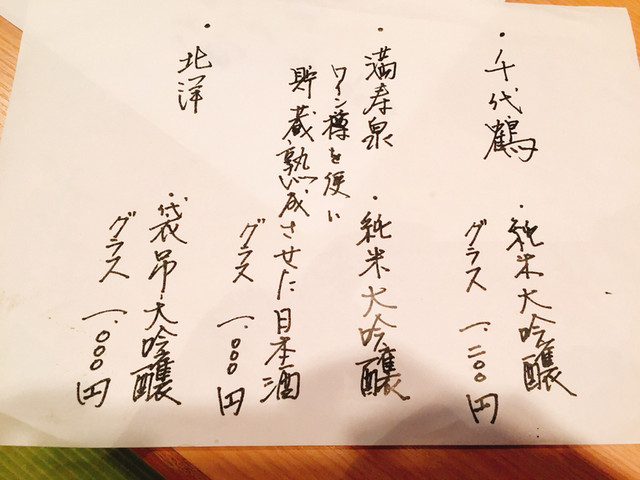 ・千代鶴
・純米大吟醸
グラス 一.二〇〇円
・満寿泉
・純米大吟醸
ワイン樽を使い
貯蔵熟成させた日本酒
グラス 一.〇〇〇円
・北洋
・袋吊大吟醸
グラス 一.〇〇〇円